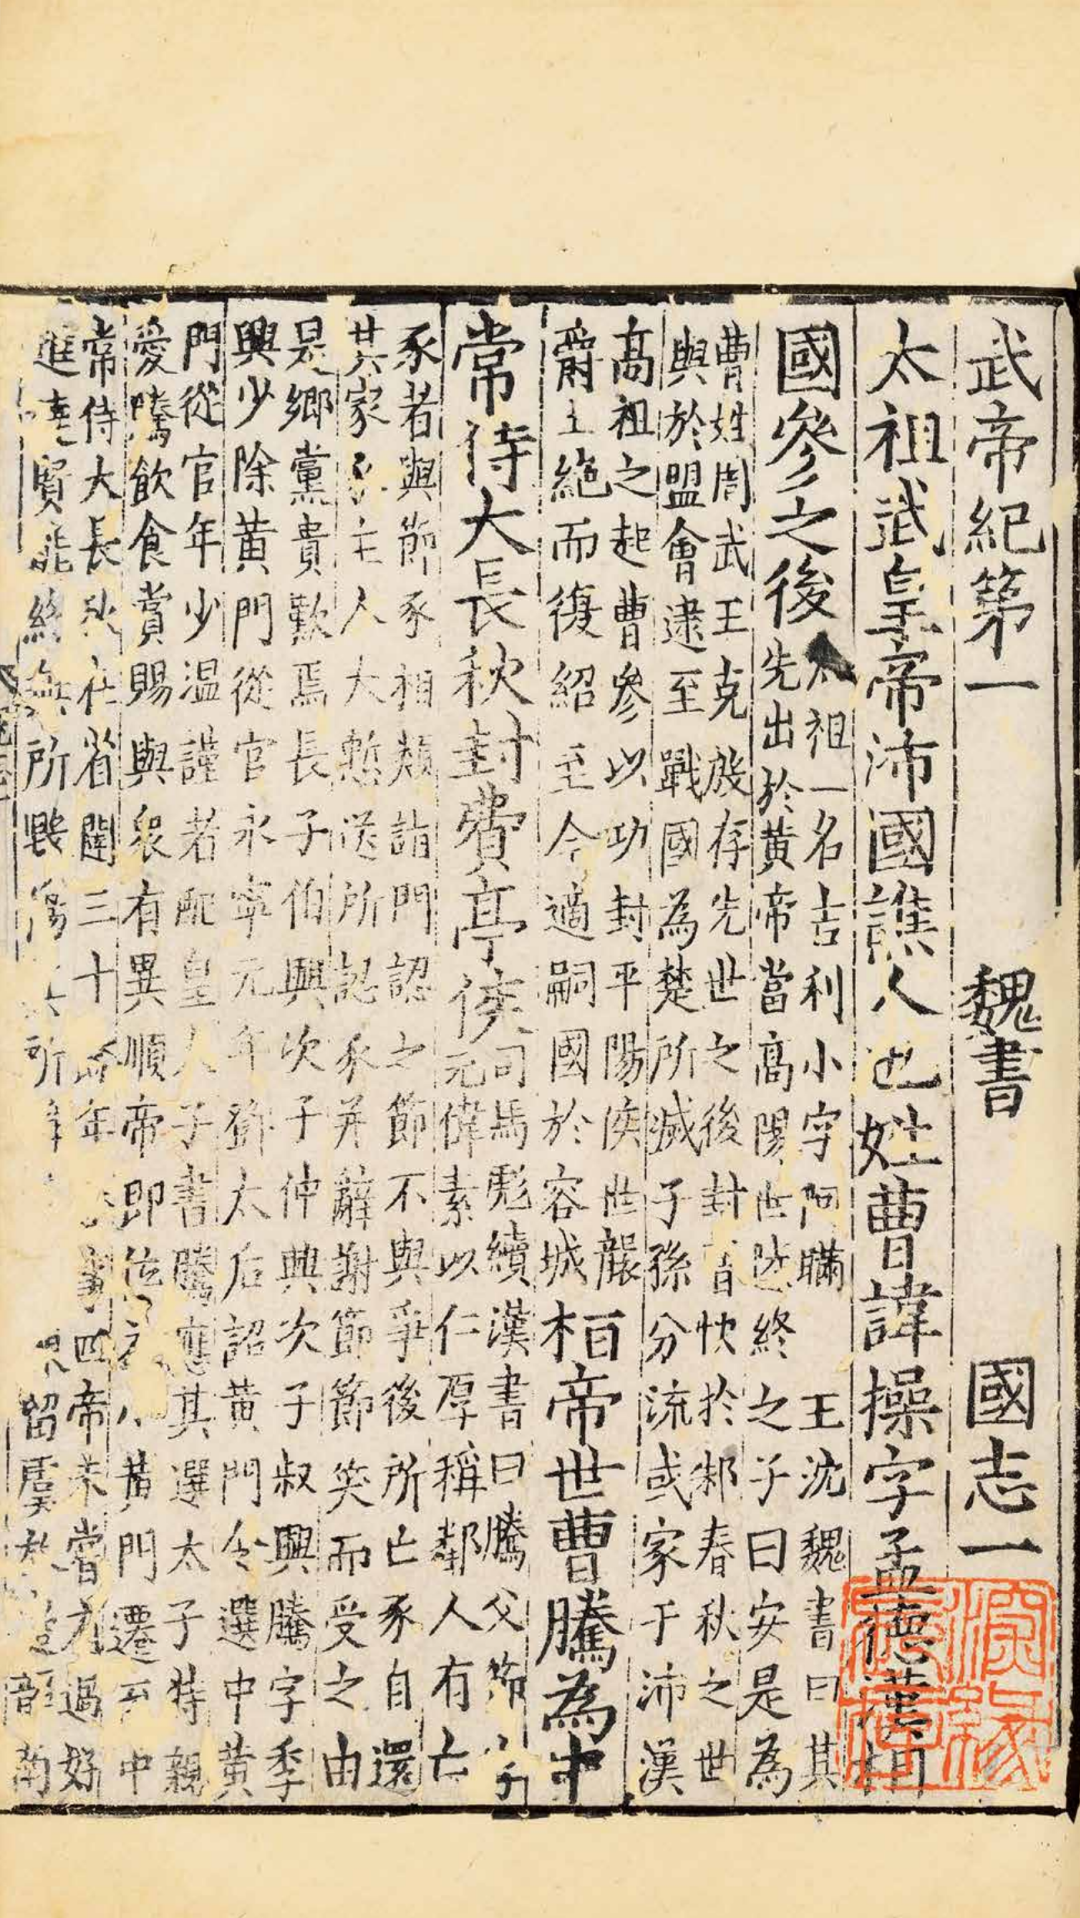 武帝紀第一 魏書 國志一
太祖武皇帝沛國譙人也姓曹諱操字孟德漢相
國參之後
太祖一名吉利小字阿瞞 王沈魏書曰其
先出於黃帝當高陽世陸終之子曰安是為
曹姓周武王克殷存先世之後封曹俠於邾春秋之世
與於盟會逮至戰國為楚所滅子孫分流或家于沛漢
高祖之起曹參以功封平陽侯世襲
爵土絕而復紹至今適嗣國於容城
桓帝世曹騰為中
常侍大長秋封費亭侯
司馬彪續漢書曰騰父節字
元偉素以仁厚稱鄰人有亡
豕者與節豕相類詣門認之節不與爭後所亡豕自還
其家豕主人大慙送所認豕并辭謝節節笑而受之由
是鄉黨貴歎焉長子伯興次子仲興次子叔興騰字季
興少除黃門從官永寧元年鄧太后詔黃門令選中黃
門從官年少溫謹者配皇太子書騰應其選太子特親
愛騰飲食賞賜與衆有異順帝即位為小黃門遷至中
常侍大長秋在省闥三十餘年事四帝未嘗有過好
進達賢能終無所毀傷其所留虞放邊韶南